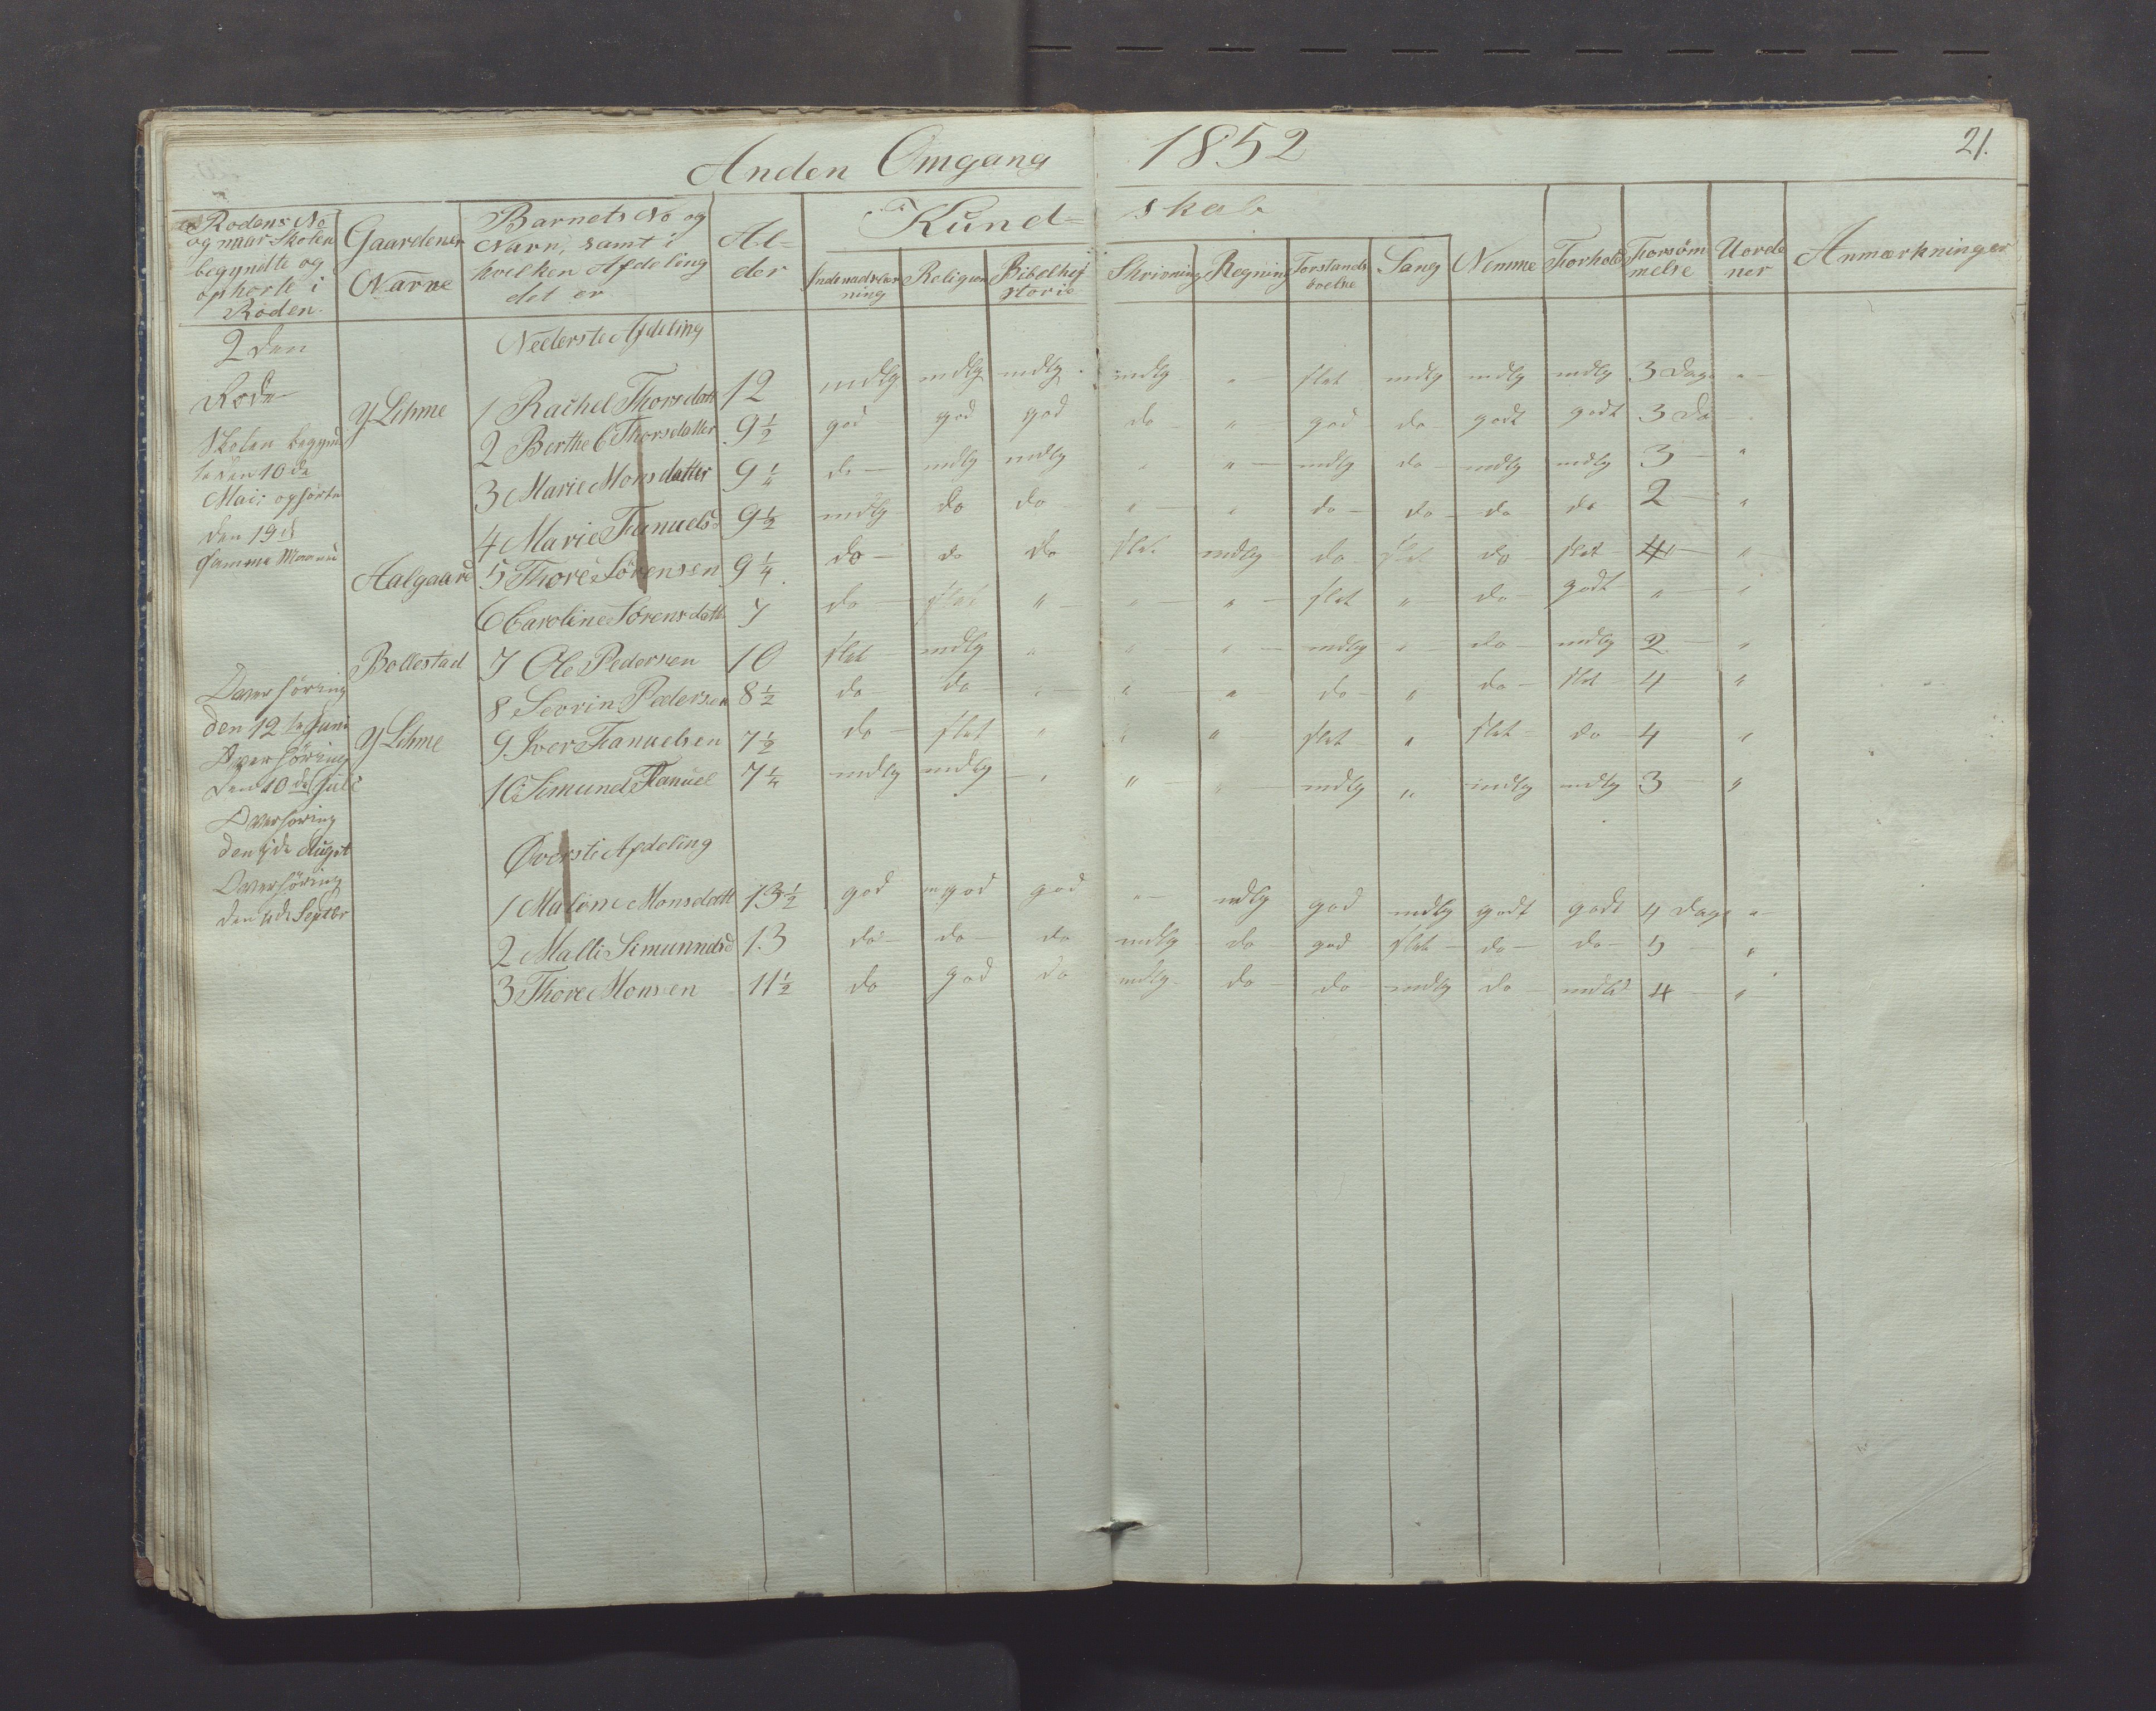 Anden Omgang 1852 21.
Rodens No og naar Skolen begyndte og ophørte i Roden. | Gaardenes Navne | Barnets No og Navn, samt i hvilken Afdeling det er | Alder | Kundskab | Nemme | Forhold | Forsømmelse | Uordener | Anmærkninger
Indenadslæsning | Religion | Bibelhistorie | Skrivning | Regning | Forstandsøvelse | Sang
2den Nederste Afdeling
Rode
Y Lihme 1 Rachel Thorsdatt 12 mdlg mdlg mdlg mdlg " slet mdlg mdlg mdlg 3 Dage "
2 Berthe C Thorsdatter 9½ god god god do " god do godt godt 3 Do
Skolen begynd
te den 10de
3 Marie Monsdatter 9¼ do mdlg mdlg " " mdlg do mdlg mdlg 3 "
Mai; ophørte
4 Marie Fanuelsd 9½ mdlg do do " " do do do do 2 "
den 19d
samme Maaned
Aalgaard 5 Thore Sörensen 9¼ do do do slet mdlg do slet do slet 4 "
6 Caroline Sörensdatt 7 do slet " " " slet " do godt " "
Bollestad 7 Ole Pedersen 10 slet mdlg " " " mdlg " do mdlg 2 "
Overhöring
8 Sevrin Pedersen 8½ do do " " " do " do slet 4 "
den 12te Juni
Y Lihme 9 Iver Fanuelsen 7½ do slet " " " slet " slet do 4 "
Overhöring
den 10de Juli
10 Simund Fanuel 7¼ mdlg mdlg " " " mdlg " mdlg mdlg 3 "
Overhöring
den de August
Øverste Afdeling
Overhöring
1 Malene Monsdatt 13½ god god god " mdlg god mdlg godt godt 4 Dage "
den 4de Septbr
2 Malli Simunndsd 13 do do do mdlg do god slet do do 5 "
3 Thore Monsen 11½ do god do mdlg do do mdlg do mdlg 4 "